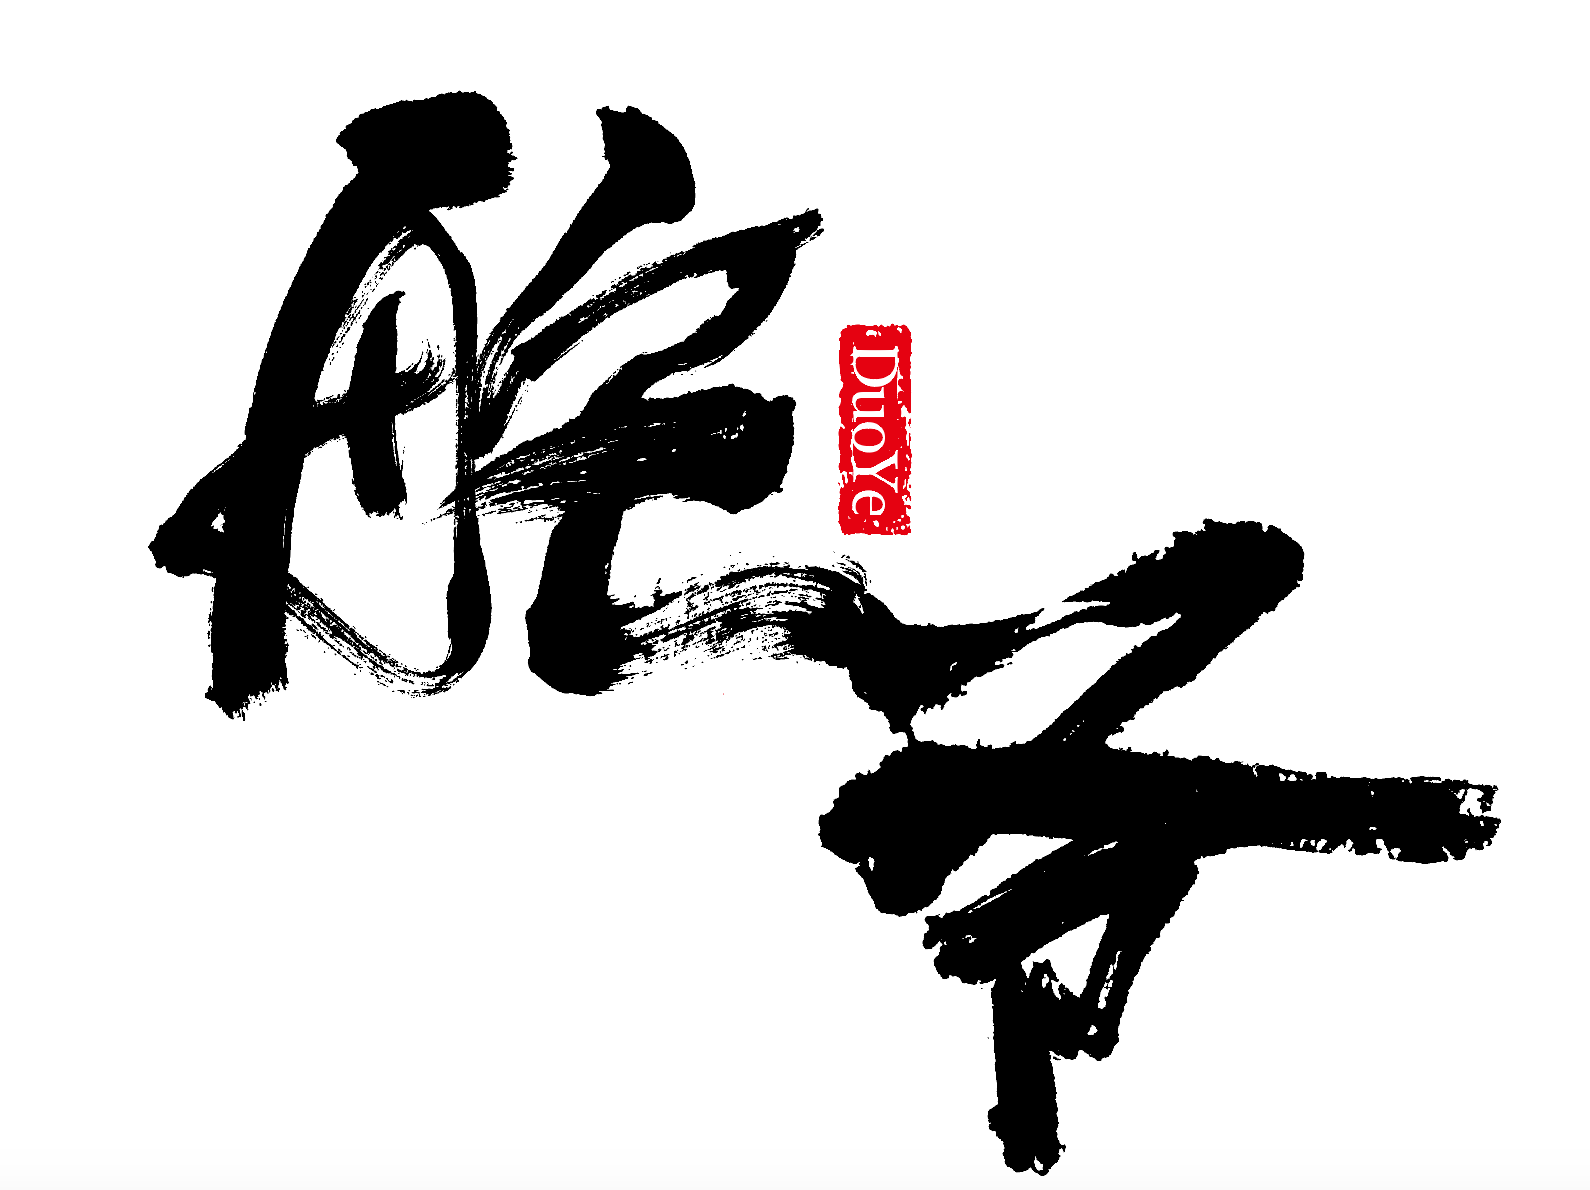 舵爷
DuoYe